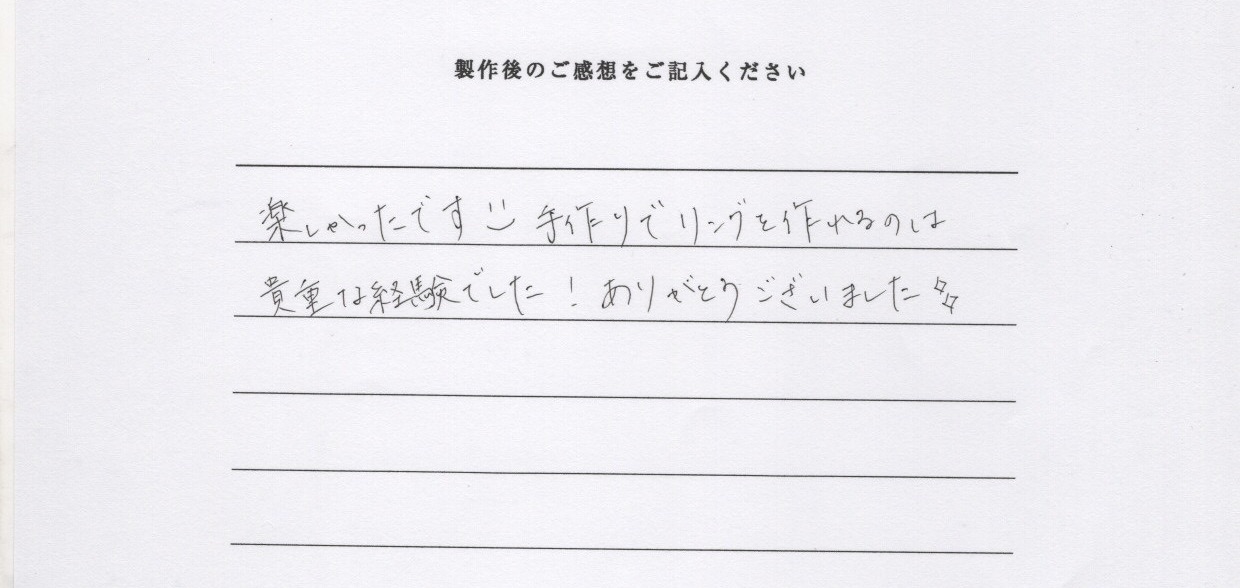 製作後のご感想をご記入ください
楽しかったです 手作りでリングを作れるのは
貴重な経験でした！ありがとうございました